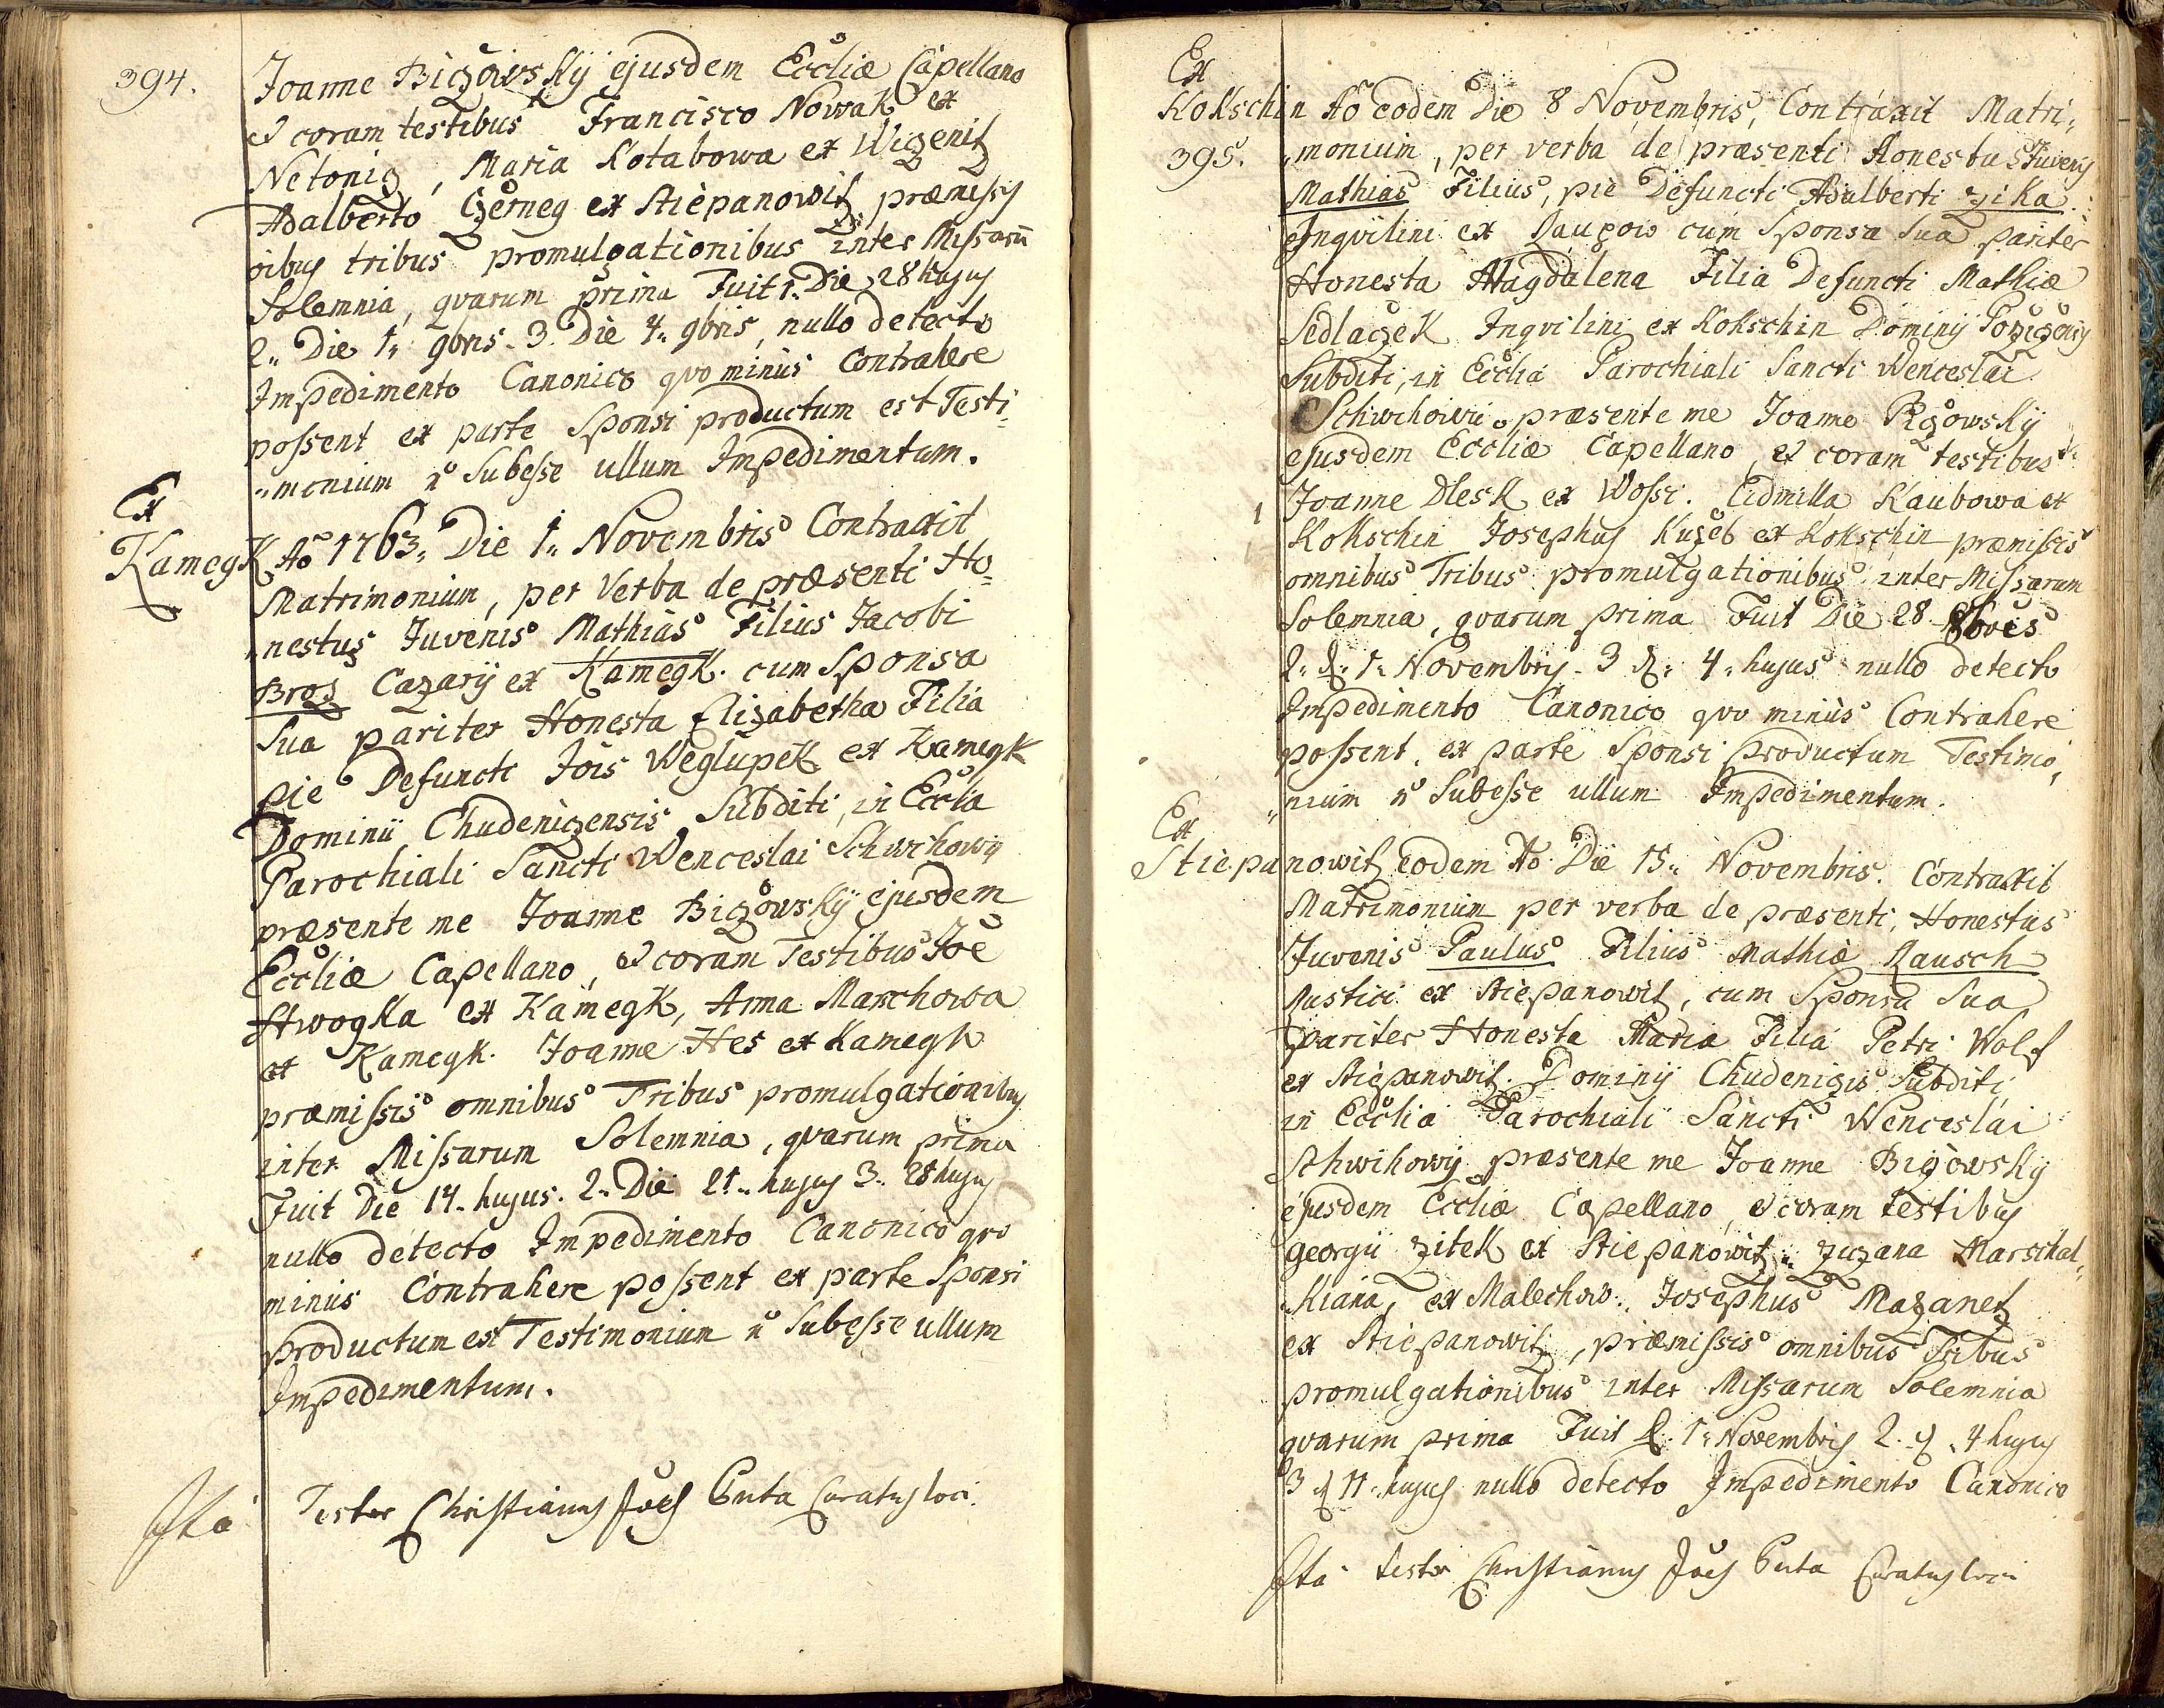 394.
Joanne Biczowsky ejusdem Eccliæ Capellano
et coram testibus Francisco Nowak ex
Netonicz, Maria Kotabowa ex Wiczenitz
Adalberto Czerneg ex Stiepanowitz præmissis
oibus tribus promulgationibus inter Missarū
Solemnia, qvarum prima Fuit 1. Die 28 hujus
2.. Die 1.. 9bris 3. Die 4.. 9bris, nullo detecto
Impedimento Canonico qvo minus Contrahere
possent ex parte Sponsi productum est Testi
„monium n̄ Subesse ullum Impedimentum.
Ex
Kamegk Aō 1763.. Die 1.. Novembris Contraxit
Matrimonium, per Verba de præsenti Ho
„nestus Juvenis Mathias Filius Jacobi
Broz Cazarij ex Kamegk. cum Sponsa
Sua pariter Honesta Elizabetha Filia
pie Defuncti Jōis Weglupek ex Kamegk
Dominii Chudeniczensis Subditi, in Ecclia
Parochiali Sancti Wenceslai Schwihowij
præsente me Joanne Biczowsky ejusdem
Eccliæ Capellano, et coram Testibus Jōe
Hwogka ex Kamegk, Anna Marschowa
ex Kamegk. Joanne Hes ex Kamegk
præmissis omnibus Tribus promulgationibus
inter Missarum Solemnia, qvarum prima
Fuit Die 14.. hujus. 2.. Die 21.. hujus 3.. 28 hujus
nullo detecto Impedimento Canonico qvo
minus Contrahere possent ex parte Sponsi
productum est Testimonium n̄ Subesse ullum
Impedimentum.
Ita Testor Christianus Jōes Puta Curatus loci.
Ex
Kokschin Aō eodem Die 8 Novembris, Contraxit Matri„
395. „monium, per verba de præsenti Honestus Juvenis
Mathias Filius, pie Defuncti Adalberti Zika
Inqvilini ex cum Sponsa Sua pariter
Honesta Magdalena Filia Defuncti Mathiæ
Sedlaczek Inqvilini ex Kokschin Dominij
Subditi, in Ecclia Parochiali Sancti Wenceslai
Schwihowii præsente me Joanne Biczowsky
ejusdem Eccliæ Capellano, et coram testibus
Joanne Dlesk ex Wossi. Lidmilla Kaubowa ex
Kokschin Josephus Kuzeb ex Kokschin præmissis
omnibus Tribus promulgationibus inter Missarum
Solemnia, qvarum prima Fuit Die 28
2.. d.. 1.. Novembris 3 d.. 4.. hujus nullo detecto
Impedimento Canonico qvo minus Contrahere
possent, ex parte Sponsi productum Testimo„
„nium n̄ Subesse ullum Impedimentum.
Ex
Stiepanowitz eodem Aō Die 15.. Novembris. Contraxit
Matrimonium per verba de præsenti, Honestus
Juvenis Paulus Filius Mathiæ Rausch
Rustici ex Stiepanowitz, cum Sponsa Sua
pariter Honesta Maria Filia Petri Wolf
ex Stiepanowitz. Dominij Chudenicis Subditi
in Ecclia Parochiali Sancti Wenceslai
Schwihowij præsente me Joanne Biczowsky
ejusdem Eccliæ Capellano, et coram testibus
Georgii Zitek ex Stiepanowitz.. Zuzana Marschal„
„kiana, ex Malechow.. Josephus Mazanetz
ex Stiepanowitz, præmissis omnibus Tribus
promulgationibus inter Missarum Solemnia
qvarum prima Fuit d. 1.. Novembris 2. d. 4 hujus
3 d 11.. hujus nullo detecto Impedimento Canonico
Ita testor Christianus Jōes Puta Curatus loci